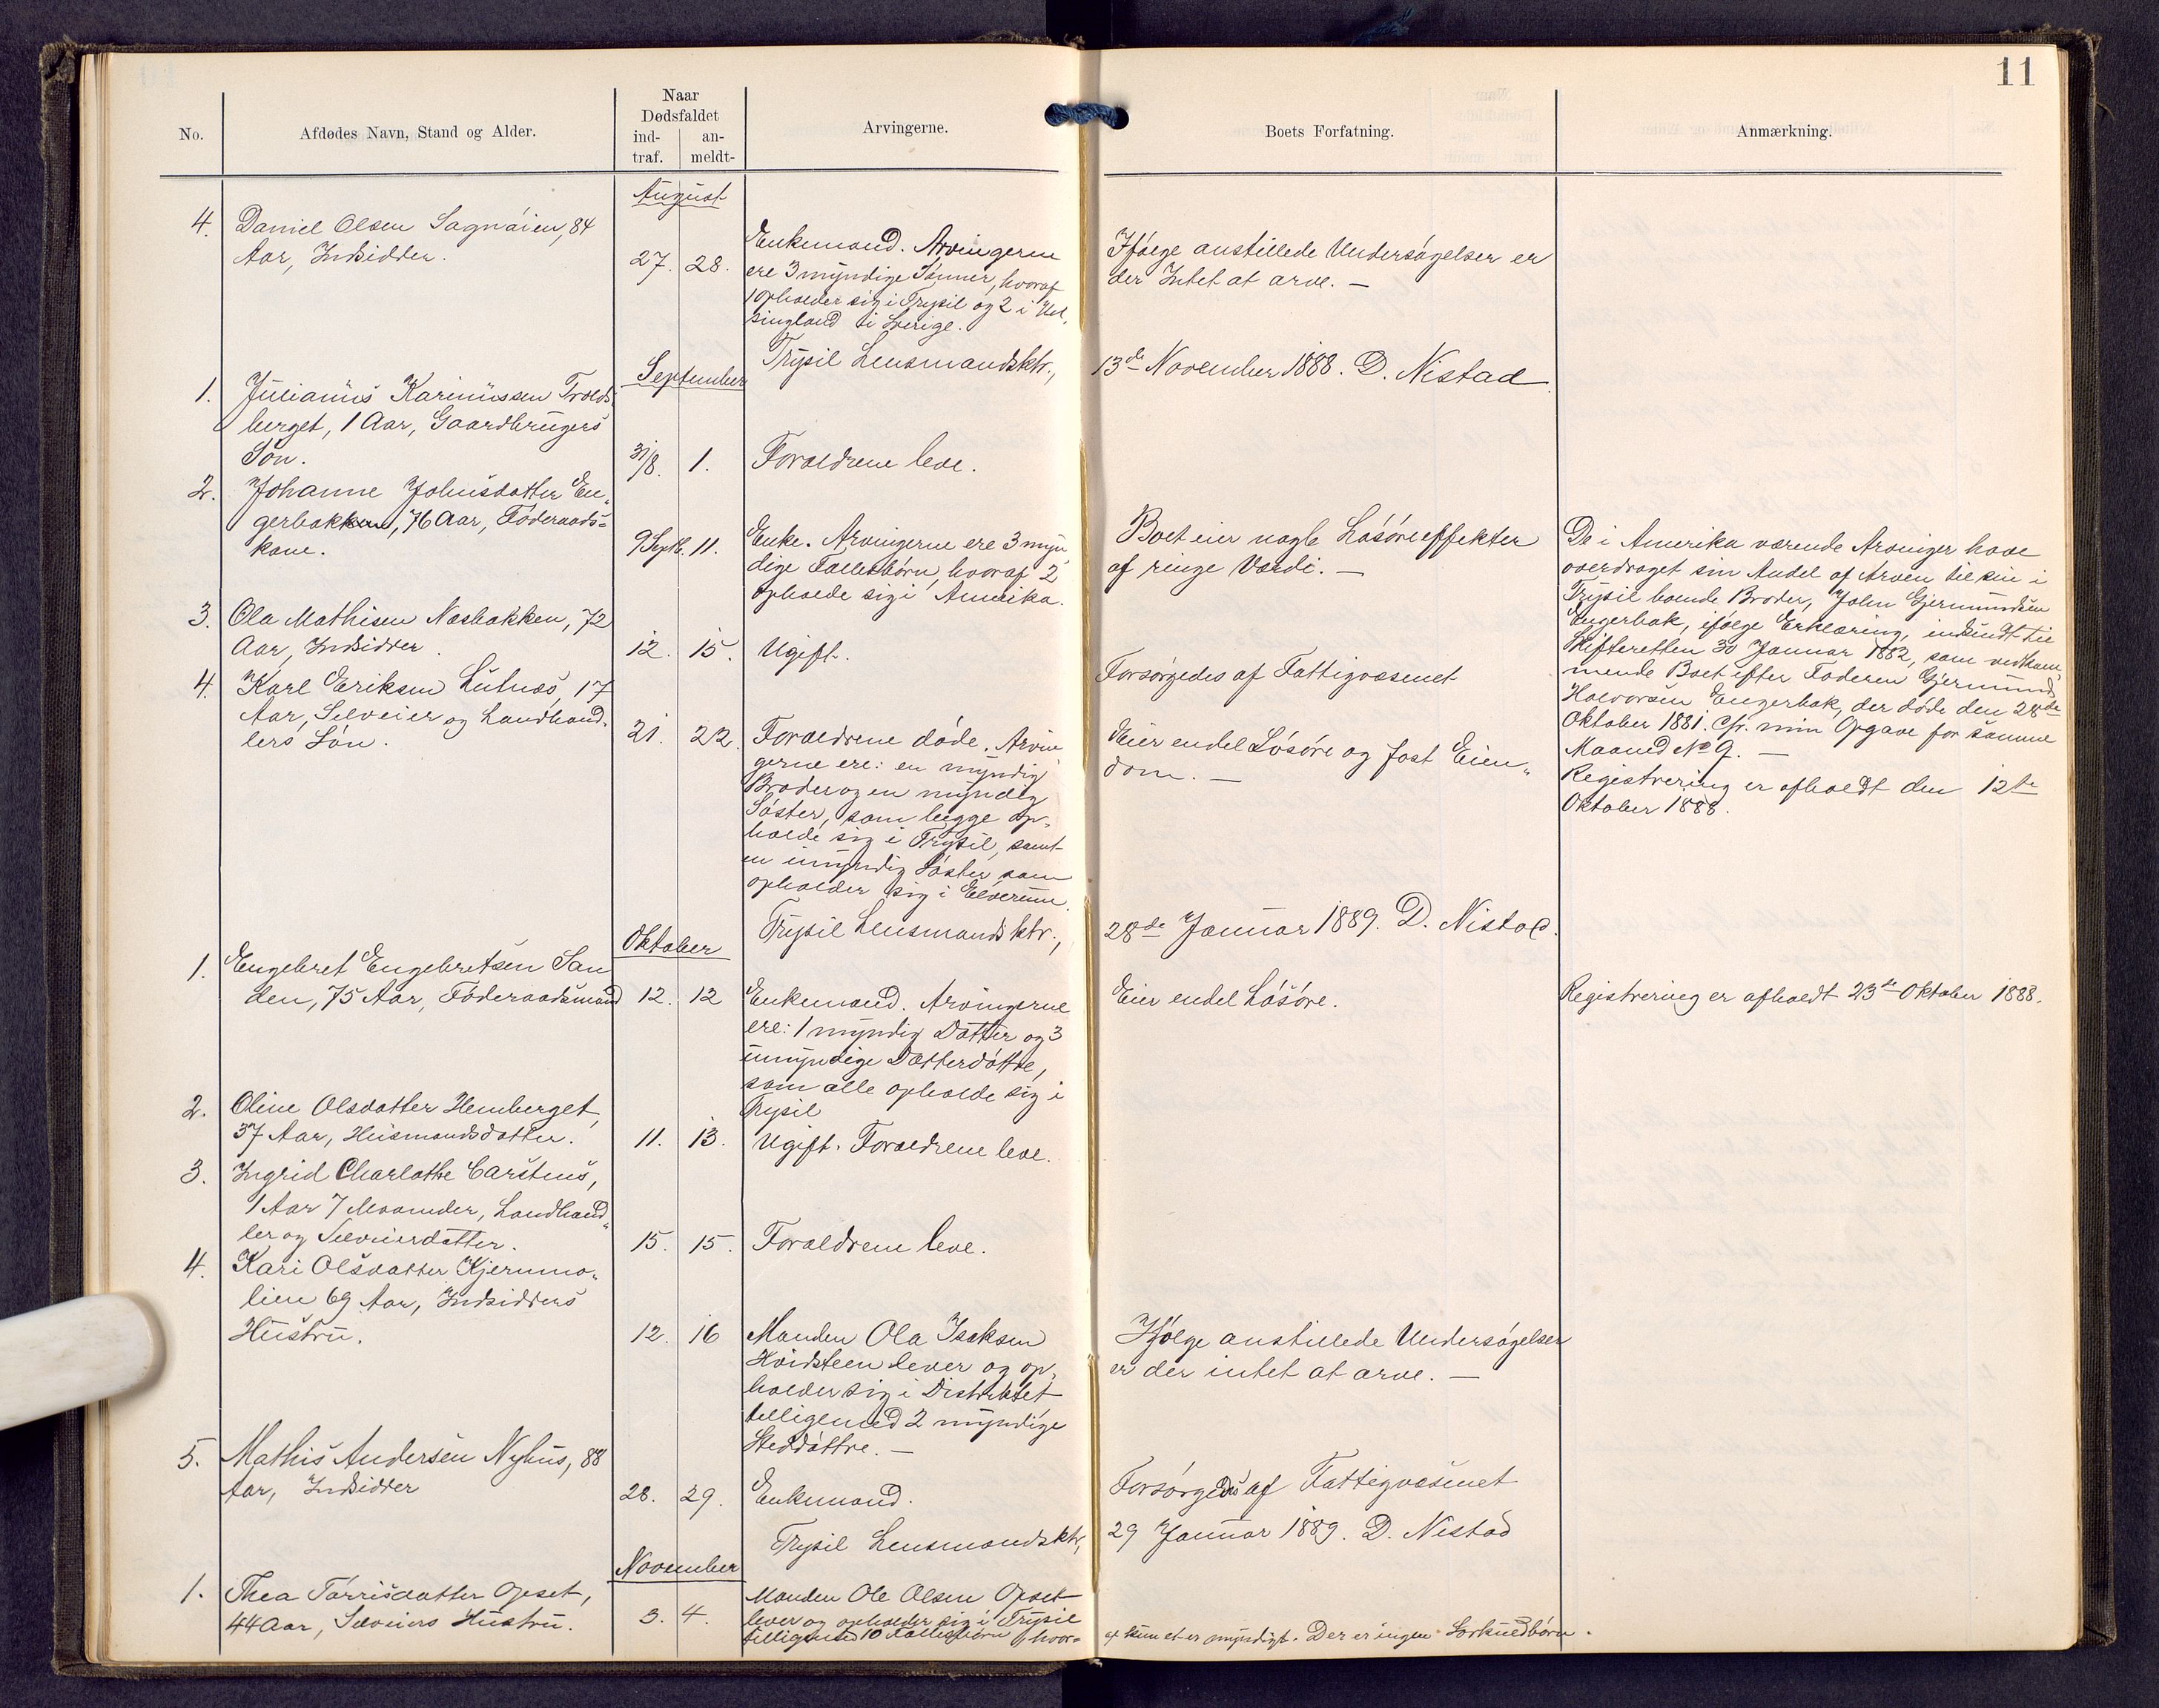 11
No.
Afdødes Navn, Stand og Alder.
Naar
Dødsfaldet
ind-
traf.
an-
meldt-
Arvingerne.
Boets Forfatning.
Anmærkning.
August
4. Daniel Olsen Sagmoien, 84
Aar, Indsidder.
27. 28.
Enkemand. Arvingerne
ere 3 myndige Sønner, hvoraf
1 opholder sig i Trysil og 2 i Hel-
singland i Sverige.
Ifølge anstillede Undersøgelser er
der Intet at arve. —
Trysil Lensmandsktr., 13de November 1888. D. Nistad
September
1. Julianus Karinussen Trolds-
berget, 1 Aar, Gaardbrugers
Søn.
31/8 1.
Forældrene leve.
2. Johanne Johnsdatter En-
gerbakken, 76 Aar, Føderaads-
kone.
9 Septb. 11.
Enke. Arvingerne ere 3 myn-
dige Fællesbørn, hvoraf 2
opholde sig i Amerika.
Boet eier nogle Løsøreeffekter
af ringe Værdi. —
De i Amerika værende Arvinger have
overdraget sin Andel af Arven til sin i
Trysil boende Broder, John Gjermundsen
Engerbak, ifølge Erklæring, indsendt til
Skifteretten 30 Januar 1882, som vedkom-
mende Boet efter Faderen Gjermund
Halvorsen Engerbak, der døde den 28de
Oktober 1881. Cfr. min Opgave for samme
Maaned No 9. —
3. Ola Mathisen Næsbakken, 72
Aar, Indsidder.
12. 15.
Ugift.
Forsørgedes af Fattigvæsenet
4. Karl Eriksen Lutnæs, 17
Aar, Selveier og Landhand-
lers Søn.
21. 22.
Forældrene døde. Arvin-
gerne ere: en myndig
Broder og en myndig
Søster, som begge op-
holde sig i Trysil, samt
en umyndig Søster som
opholder sig i Elverum.
Eier endel Løsøre og fast Eien-
dom. —
Registrering er afholdt den 12te
Oktober 1888.
Trysil Lensmandsktr., 28de Januar 1889. D. Nistad.
Oktober
1. Engebret Engebretsen San-
den, 75 Aar, Føderaadsmand
12. 12
Enkemand. Arvingerne
ere: 1 myndig Datter og 3
umyndige Datterdøttre,
som alle opholde sig i
Trysil
Eier endel Løsøre.
Registrering er afholdt 23de Oktober 1888.
2. Oline Olsdatter Hemberget,
37 Aar, Husmandsdatter.
11. 13.
Ugift. Forældrene leve.
3. Ingrid Charlotte Carstens,
1 Aar 7 Maaneder, Landhand-
ler og Selveierdatter.
15. 15.
Forældrene leve.
4. Kari Olsdatter Kjernmo-
lien 69 Aar, Indsidders
Hustru.
12. 16
Manden Ola Isaksen
Hvidsteen lever og op-
holder sig i Distriktet
tilligemed 2 myndige
Steddøttre. —
Ifølge anstillede Undersøgelser
er der intet at arve. —
5. Mathis Andersen Nyhus, 88
Aar, Indsidder
28. 29.
Enkemand.
Forsørgedes af Fattigvæsenet
Trysil Lensmandsktr, 29 Januar 1889. D. Nistad
November
1. Thea Tørrisdatter Opset,
44 Aar, Selveiers Hustru.
3. 4.
Manden Ole Olsen Opset
lever og opholder sig i Trysil
tilligemed 10 Fællesbørn hvor-
af kun et er myndigt. Der er ingen Særkuldbørn.